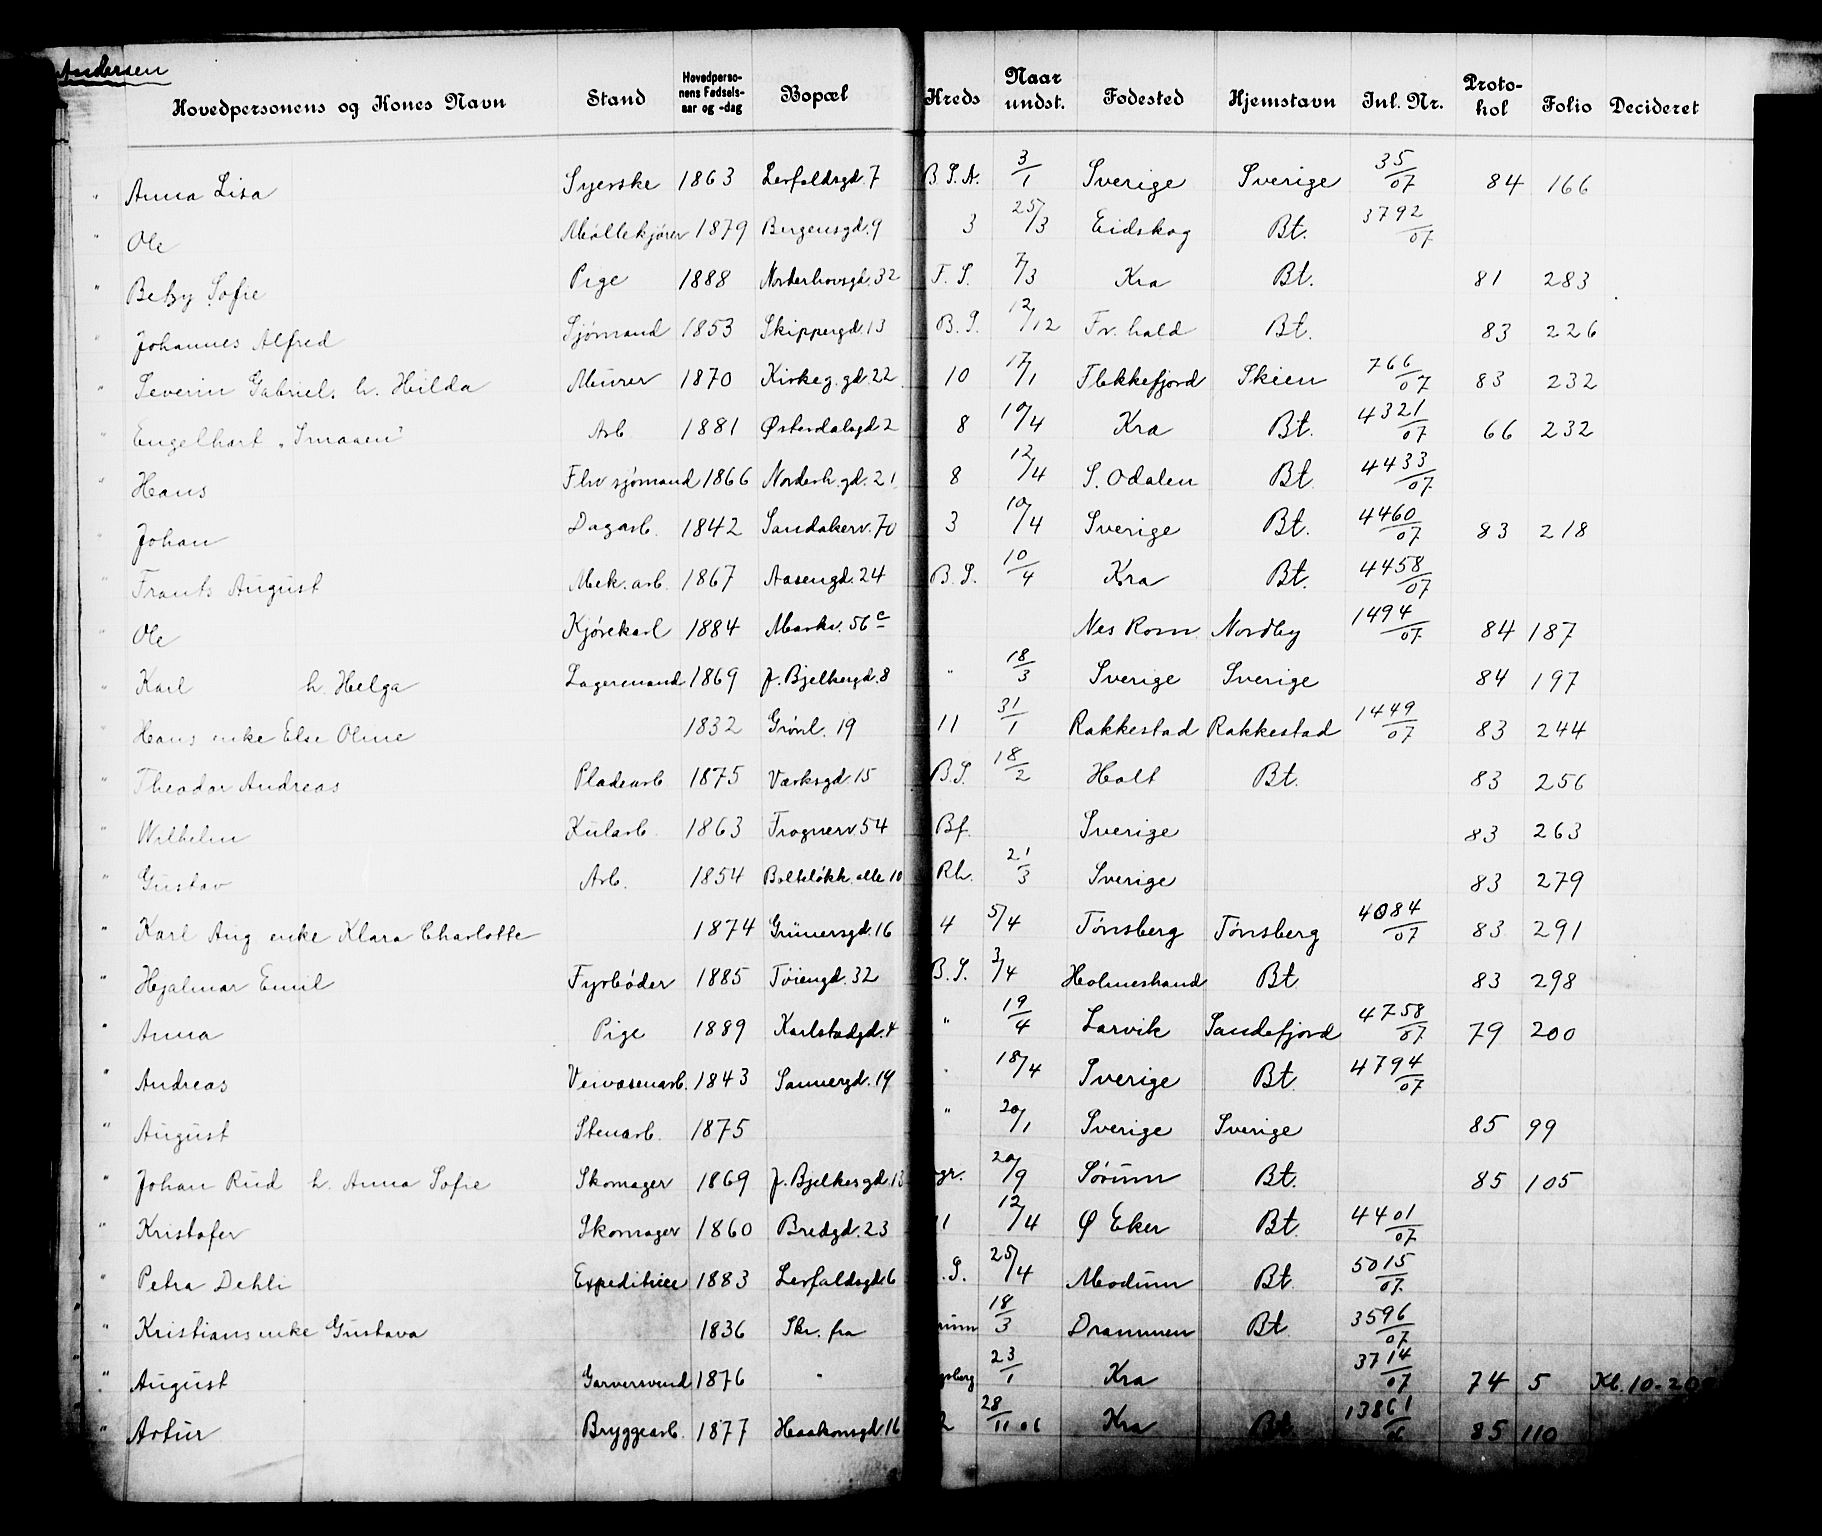 Andersen
Hovedpersonens og Kones Navn Stand Hovedpersonens Fødselsaar og -dag Bopæl Kreds Naar undst. Fødested Hjemstavn Inl. Nr. Protokol Folio Decideret
" Anna Lisa Syerske 1863 Lerfaldsgd. 7 B.S.A. 3/1 Sverige Sverige 35/07 84 166
" Ole Møllekjører 1879 Bergensgd. 9 3 25/3 Eidskog Bt. 3792/07
" Betsy Sofie Pige 1888 Norderhovsgd. 32 F.S. 7/3 Kra Bt. 81 283
" Johannes Alfred Sjømand 1853 Skippergd. 13 B.S. 12/12 Fr.hald Bt. 83 226
" Severin Gabriel. h. Hilda Murer 1870 Kirkeg.gd. 22 10 17/1 Flekkefjord Skien 766/07 83 232
" Engelhart „Smaaen" Arb. 1881 Østerdalsgd 2 8 10/4 Kra Bt. 4321/07 66 232
" Hans Fhv sjømand 1866 Norderh.gd. 21 8 12/4 S. Odalen Bt. 4433/07
" Johan Dagarb. 1842 Sandakerv. 70 3 10/4 Sverige Bt. 4460/07 83 218
" Frants August Mek. arb. 1867 Aasengd. 24 B.S. 10/4 Kra Bt. 4458/07
" Ole Kjørekarl 1884 Markv. 56 c Nes Rom Nordby 1494/07 84 187
" Karl h. Helga Lagermand 1869 J. Bjelkergd. 8 " 18/3 Sverige Sverige 84 197
" Hans enke Else Oline 1832 Grønl. 19 11 31/1 Rakkestad Rakkestad 1449/07 83 244
" Theodor Andreas Pladearb 1875 Værksgd. 15 B.S. 18/2 Holt Bt. 83 256
" Wilhelm Kularb. 1863 Frognerv. 54 Bf. Sverige 83 263
" Gustav Arb. 1854 Bolteløkk. alle 10 Rh. 21/3 Sverige 83 279
" Karl Aug enke Klara Charlotte 1874 Grünersgd. 16 4 5/4 Tønsberg Tønsberg 4084/07 83 291
" Hjalmar Emil Fyrbøder 1885 Tøiengd. 32 B.S. 3/4 Holmestrand Bt. 83 298
" Anna Pige 1889 Karlstadgd. 4 " 19/4 Larvik Sandefjord 4758/07 79 200
" Andreas Veivæsenarb. 1843 Sannergd. 19 " 18/4 Sverige Bt. 4794/07
" August Stenarb. 1875 " 20/1 Sverige Sverige 85 99
" Johan Rud h. Anna Sofie Skomager 1869 J. Bjelkesgd. 13 gr. 20/9 Sørum Bt. 85 105
" Kristofer Skomager 1860 Bredgd. 23 11 12/4 Ø Eker Bt. 4401/07
" Petra Dehli Expeditrice 1883 Lerfaldsgd. 6 .S. 25/4 Modum Bt. 5015/07
" Kristians enke Gustava 1836 Skr. fra rum 18/3 Drammen Bt. 3596/07
" August Garversvend 1876 " gsberg 23/1 Kra 3714/07 74 5 Kl. 10-20
" Artur Bryggearb. 1877 Haakonsgd. 16 2 28/11 06 Kra Bt. 13861/06 85 110